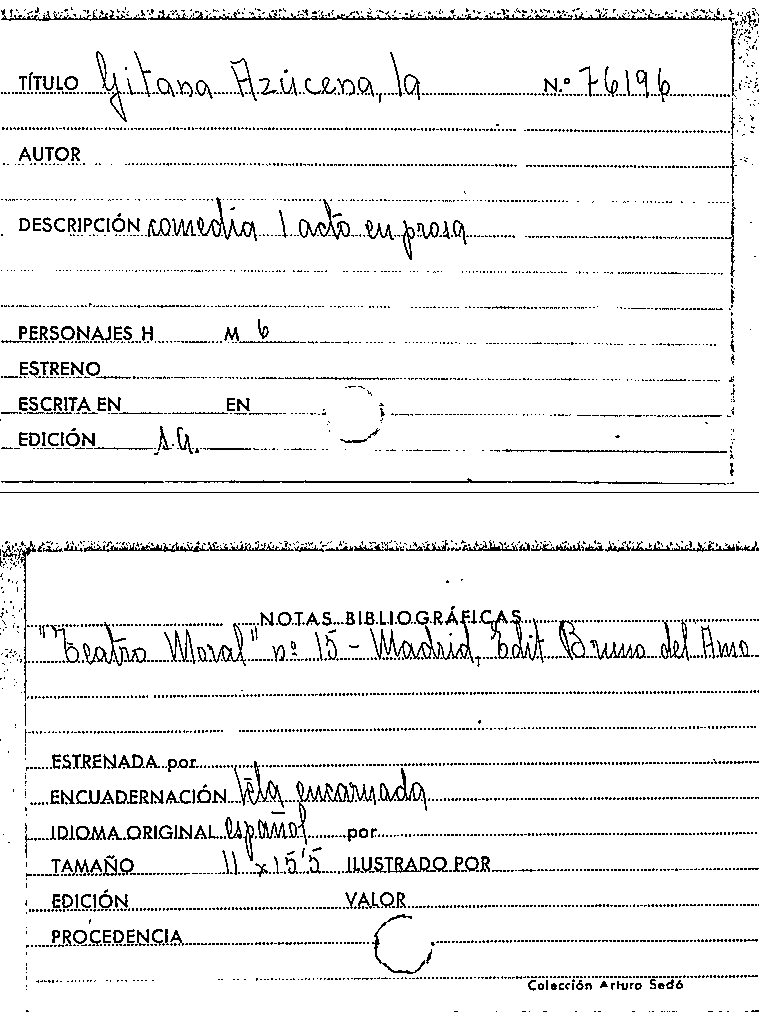 TÍTULO Gitana Azúcena, la N.º 76196
AUTOR
DESCRIPCIÓN comedia 1 acto en prosa
PERSONAJES H M 6
ESTRENO
ESCRITA EN EN
EDICIÓN s.a.
NOTAS BIBLIOGRÁFICAS
"Teatro Moral" nº 15 - Madrid, Edit Bruno del Amo
ESTRENADA por
ENCUADERNACIÓN tela encarnada
IDIOMA ORIGINAL español por
TAMAÑO 11 x 15'5 ILUSTRADO POR
EDICIÓN VALOR
PROCEDENCIA
Colección Arturo Sedó